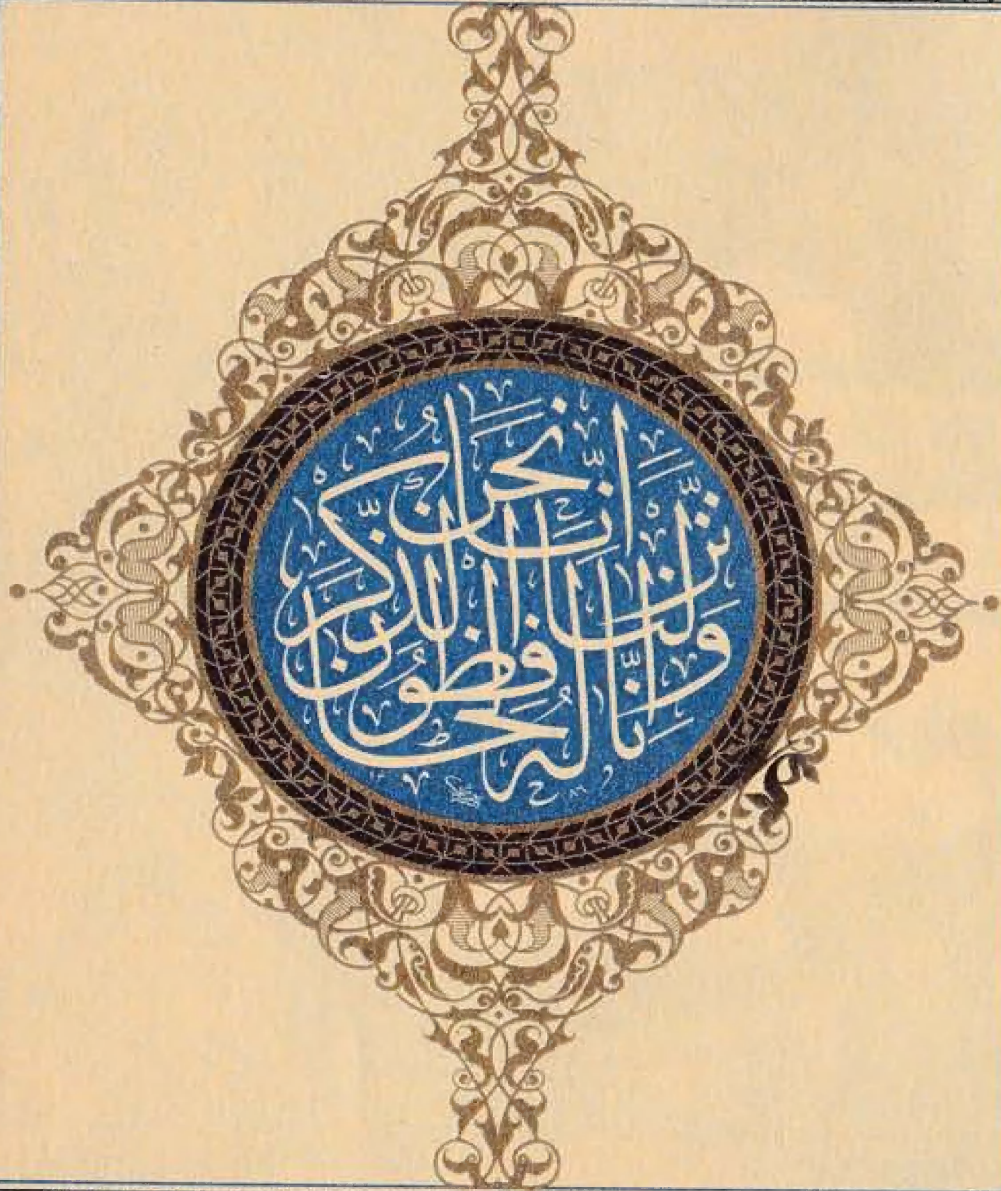 إِنَّا نَحْنُ نَزَّلْنَا الذِّكْرَ وَإِنَّا لَهُ لَحَافِظُونَ